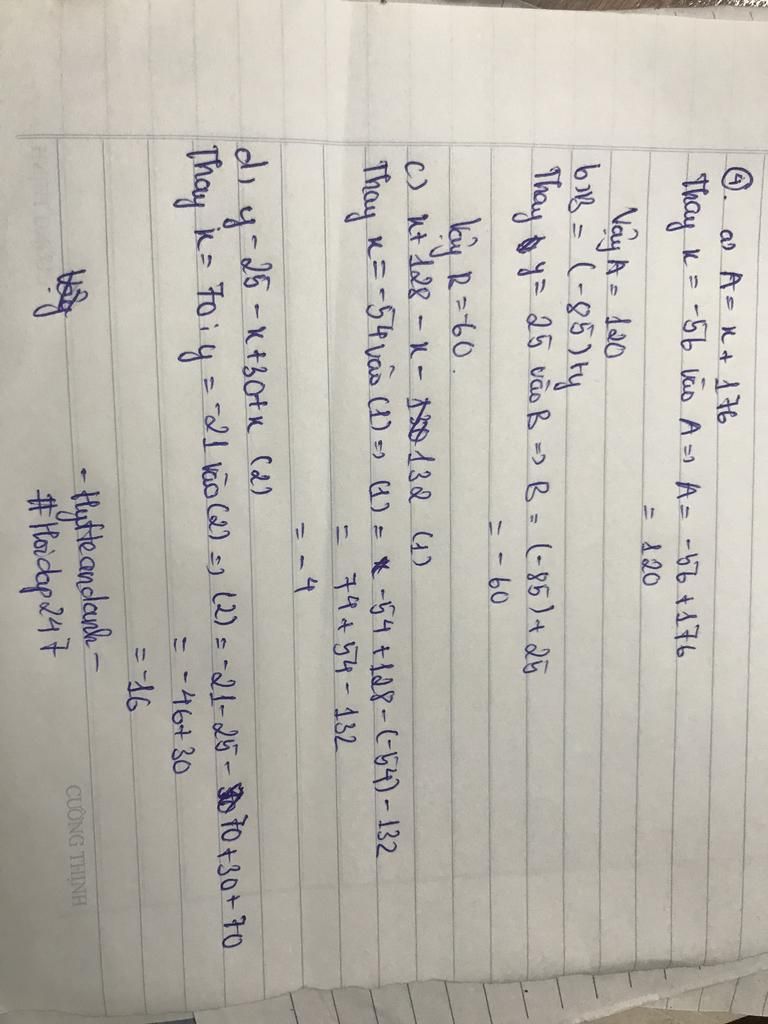 ④. a) A = x + 176
Thay x = -56 vào A => A = -56 + 176
= 120
Vậy A = 120
b) B = (-85) + y
Thay y = 25 vào B => B = (-85) + 25
= -60
Vậy B = -60.
c) x + 128 - x - 132 (1)
Thay x = -54 vào (1) => (1) = -54 + 128 - (-54) - 132
= 74 + 54 - 132
= -4
d) y - 25 - x + 30 + x (2)
Thay x = 70 ; y = -21 vào (2) => (2) = -21 - 25 - 70 + 30 + 70
= -46 + 30
= -16
#Hoidap247
CƯỜNG THỊNH